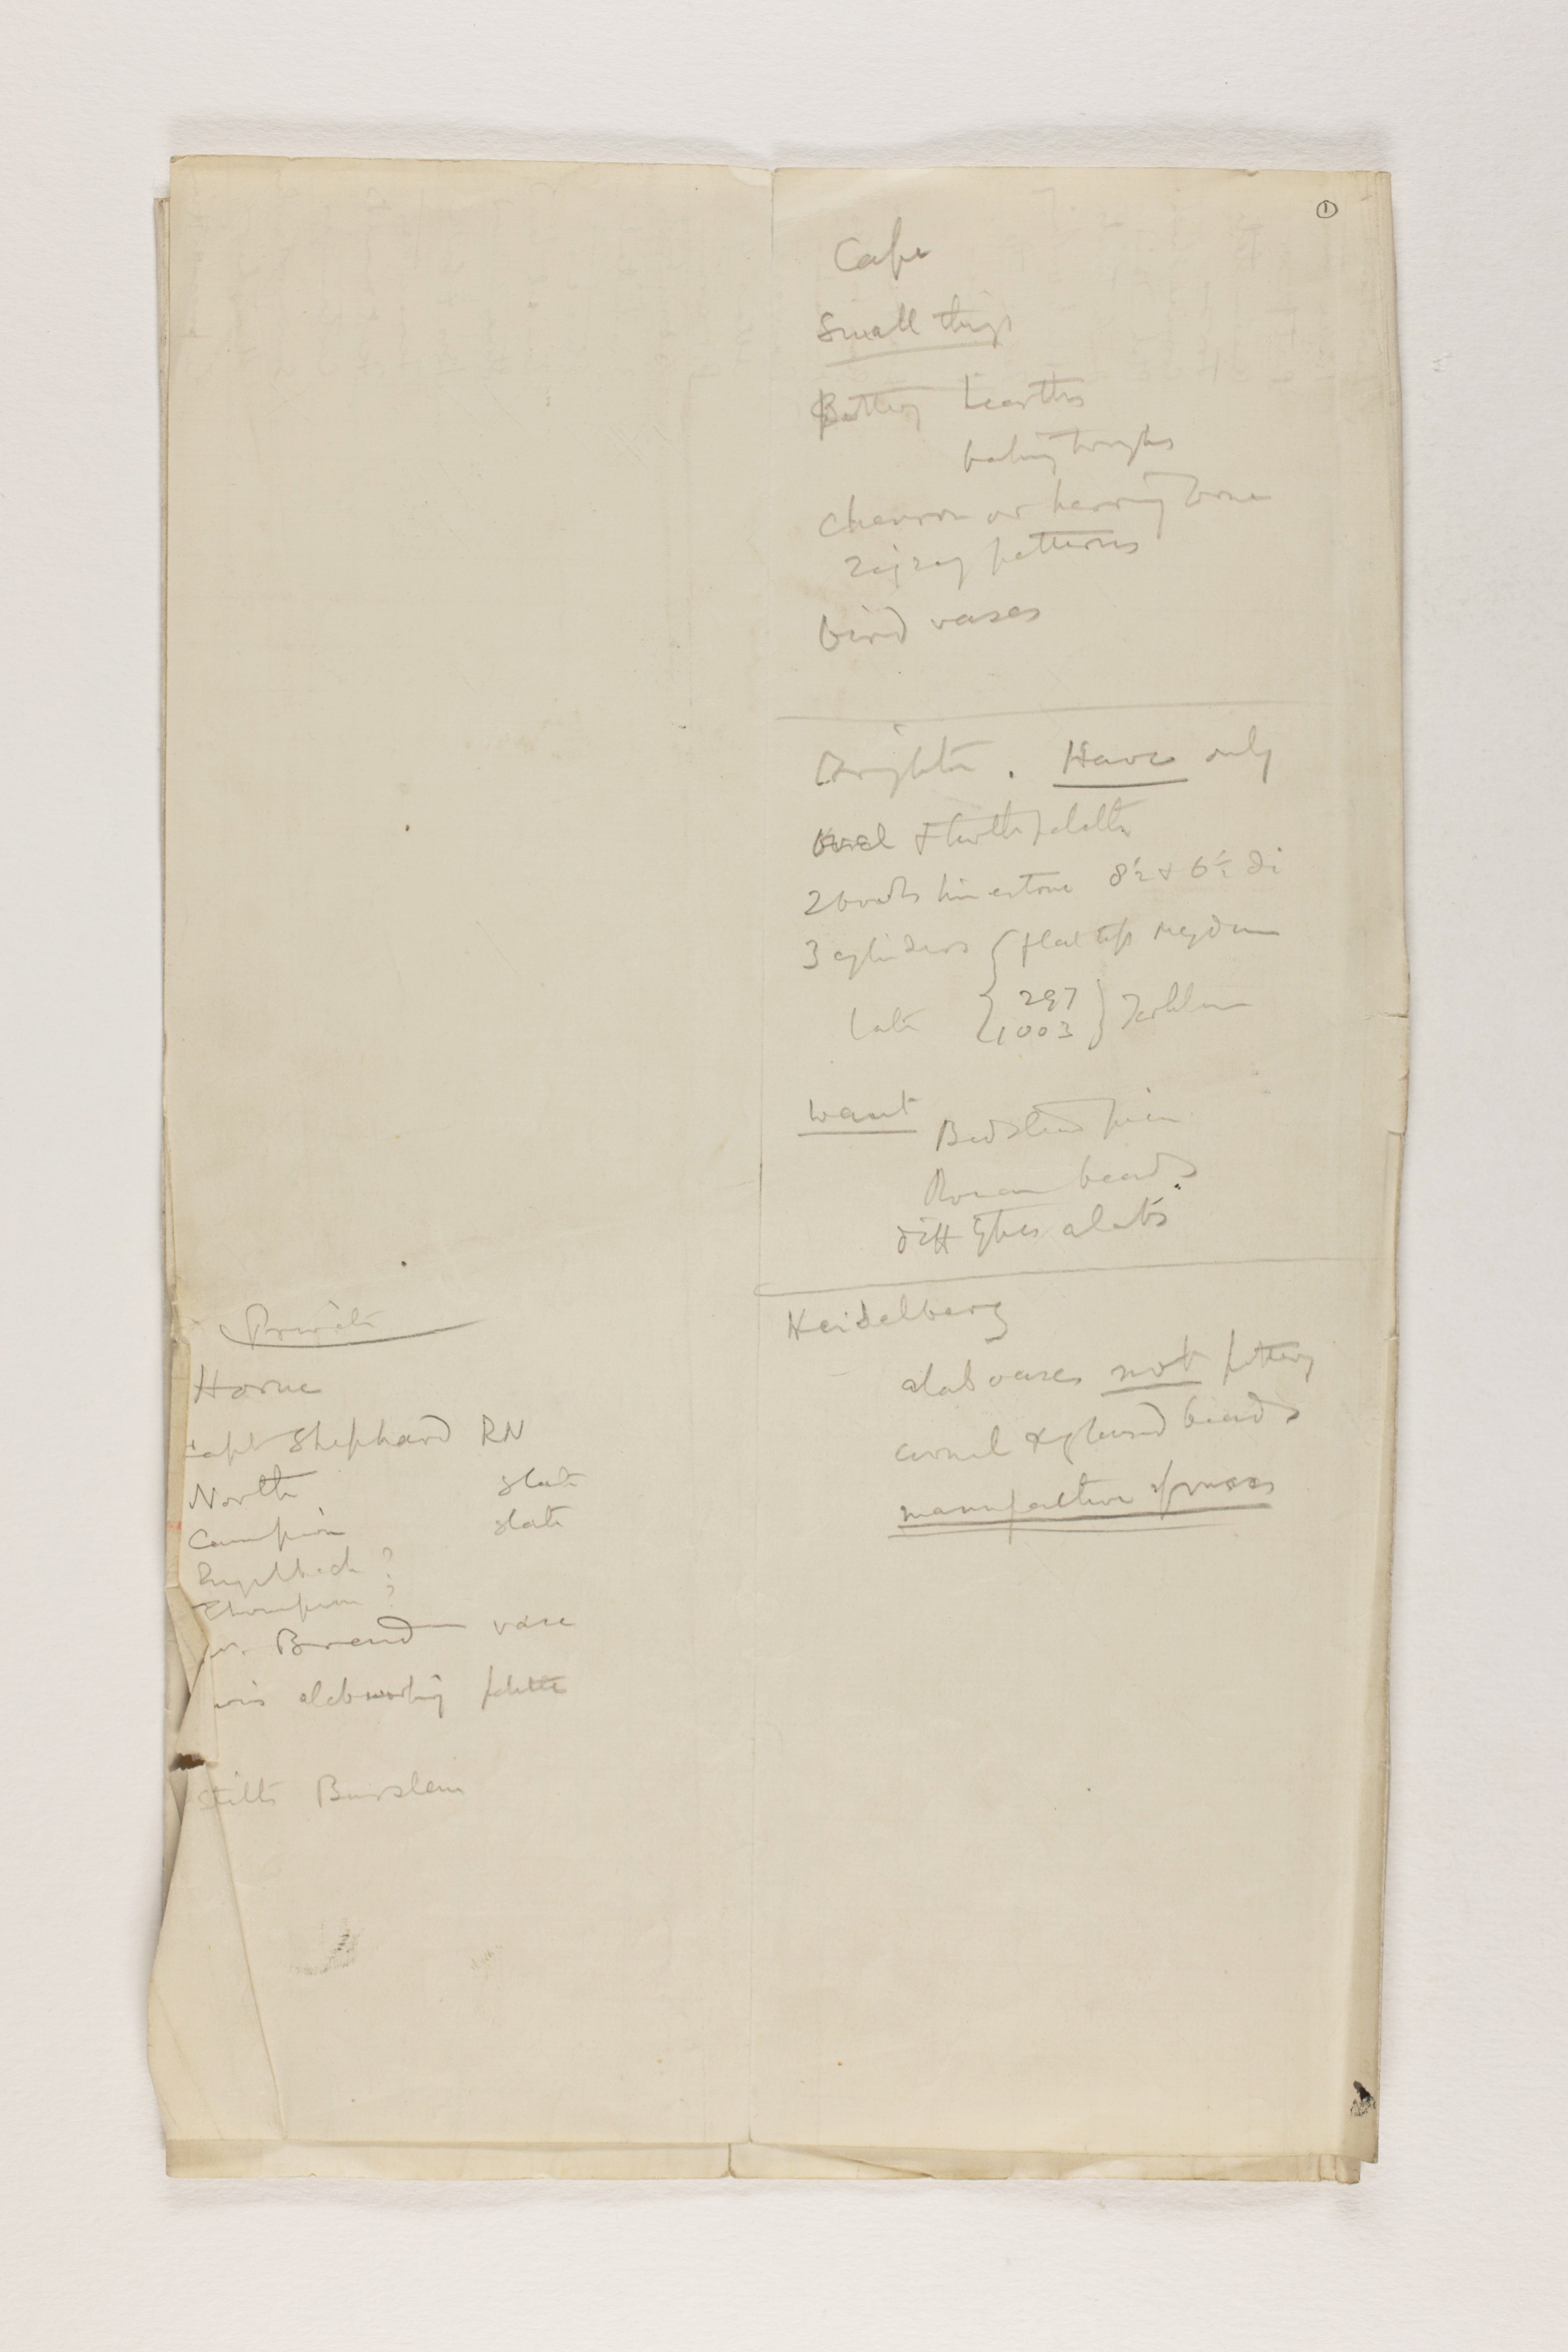 ①
Cape
Small things
Pottery hearths
baking troughs
chevron or herring bone
zigzag patterns
bird vases
Brighton. Have only
oval & turtle palette
2 bowls limestone 8½ & 6½ di
3 cylinders { flat top Meydum
late { 297
1003 } Tarkhan
Want
Bedstead
Roman beads
diff types alabs
Heidelberg
alab vases not pottery
carnel & glazed beads
manufacture of vases
Private
Horne
Capt Shephard RN
North slate
Campion slate
Engelbach ?
Thompson ?
Brend vase
alab working palette
Stilts Burslem